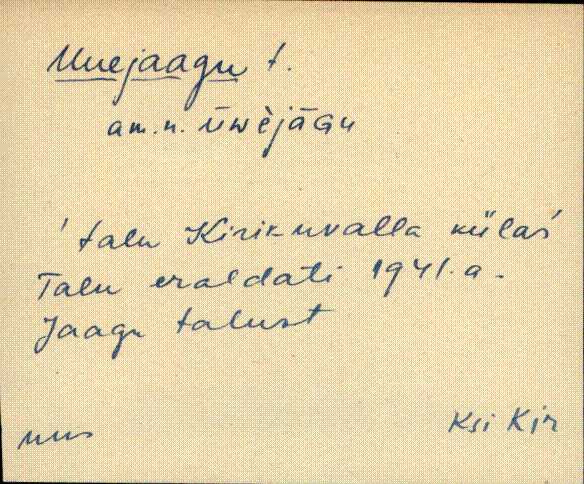 Uuejaagu t.
am.n. ūwèjāGu
' talu Kirik-uvalla külas
Talu eraldati 1941.a.
Jaagu talust
uus
Ksi Kir